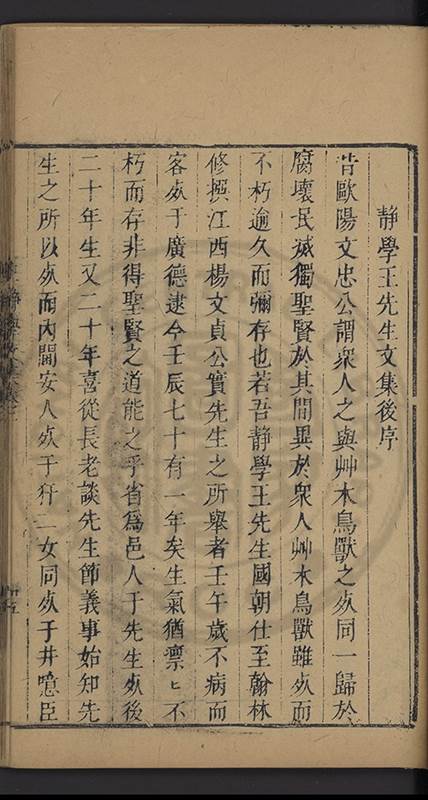 静學王先生文集後序
昔歐陽文忠公謂衆人之與艸木鳥獸之㱙同一歸於
腐壞民滅獨聖賢於其間異於衆人艸木鳥獸雖㱙而
不朽逾久而彌存也若吾静學王先生國朝仕至翰林
修撰江西楊文貞公實先生之所舉者壬午歲不病而
客㱙于廣德逮今壬辰七十有一年矣生氣猶凛ヒ不
朽而存非得聖賢之道能之乎省爲邑人于先生㱙後
二十年生又二十年喜從長老談先生節義事始知先
生之所以㱙而内閫安人㱙于犴二女同㱙于井噫臣